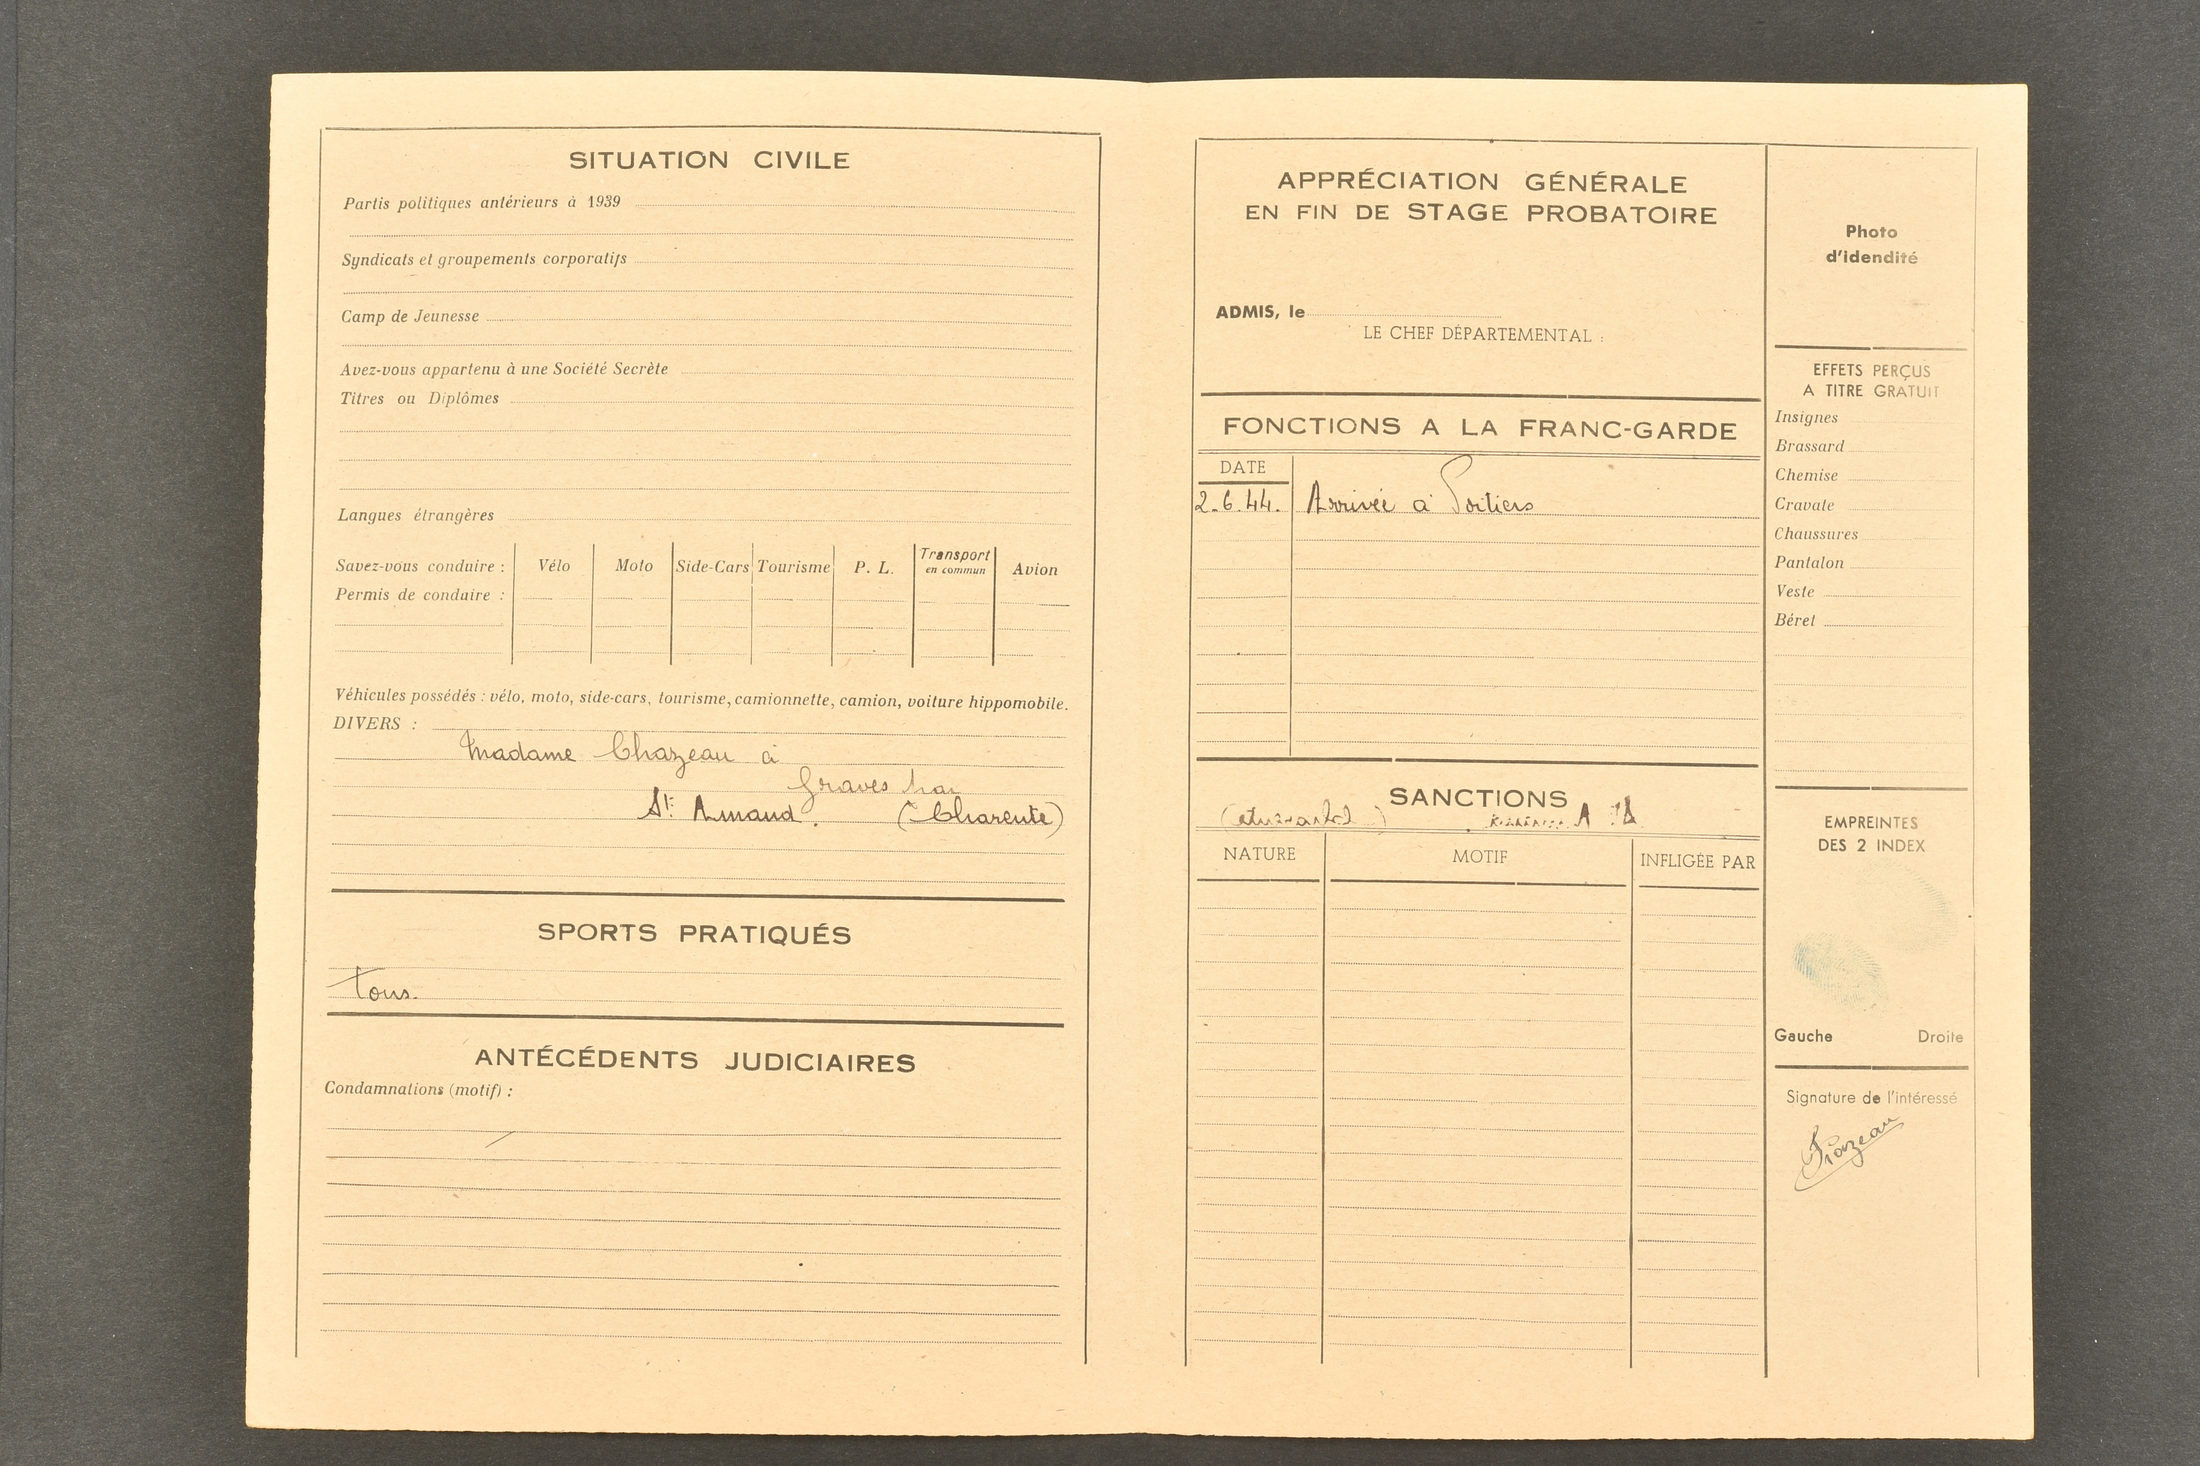 SITUATION CIVILE
Partis politiques antérieurs à 1939
Syndicats et groupements corporatifs
Camp de Jeunesse
Avez-vous appartenu à une Société Secrète
Titres ou Diplômes
Langues étrangères
Savez-vous conduire : Vélo Moto Side-Cars Tourisme P. L. Transport en commun Avion
Permis de conduire :
Véhicules possédés : vélo, moto, side-cars, tourisme, camionnette, camion, voiture hippomobile.
DIVERS :
Madame Chazeau à
Graves par
St Amand. (Charente)
SPORTS PRATIQUÉS
tous.
ANTÉCÉDENTS JUDICIAIRES
Condamnations (motif) :
APPRÉCIATION GÉNÉRALE
EN FIN DE STAGE PROBATOIRE
ADMIS, le
LE CHEF DÉPARTEMENTAL :
FONCTIONS A LA FRANC-GARDE
DATE
2.6.44. Arrivée à Poitiers
SANCTIONS
NATURE MOTIF INFLIGÉE PAR
Photo
d'idendité
EFFETS PERÇUS
A TITRE GRATUIT
Insignes
Brassard
Chemise
Cravate
Chaussures
Pantalon
Veste
Béret
EMPREINTES
DES 2 INDEX
Gauche Droite
Signature de l'intéressé